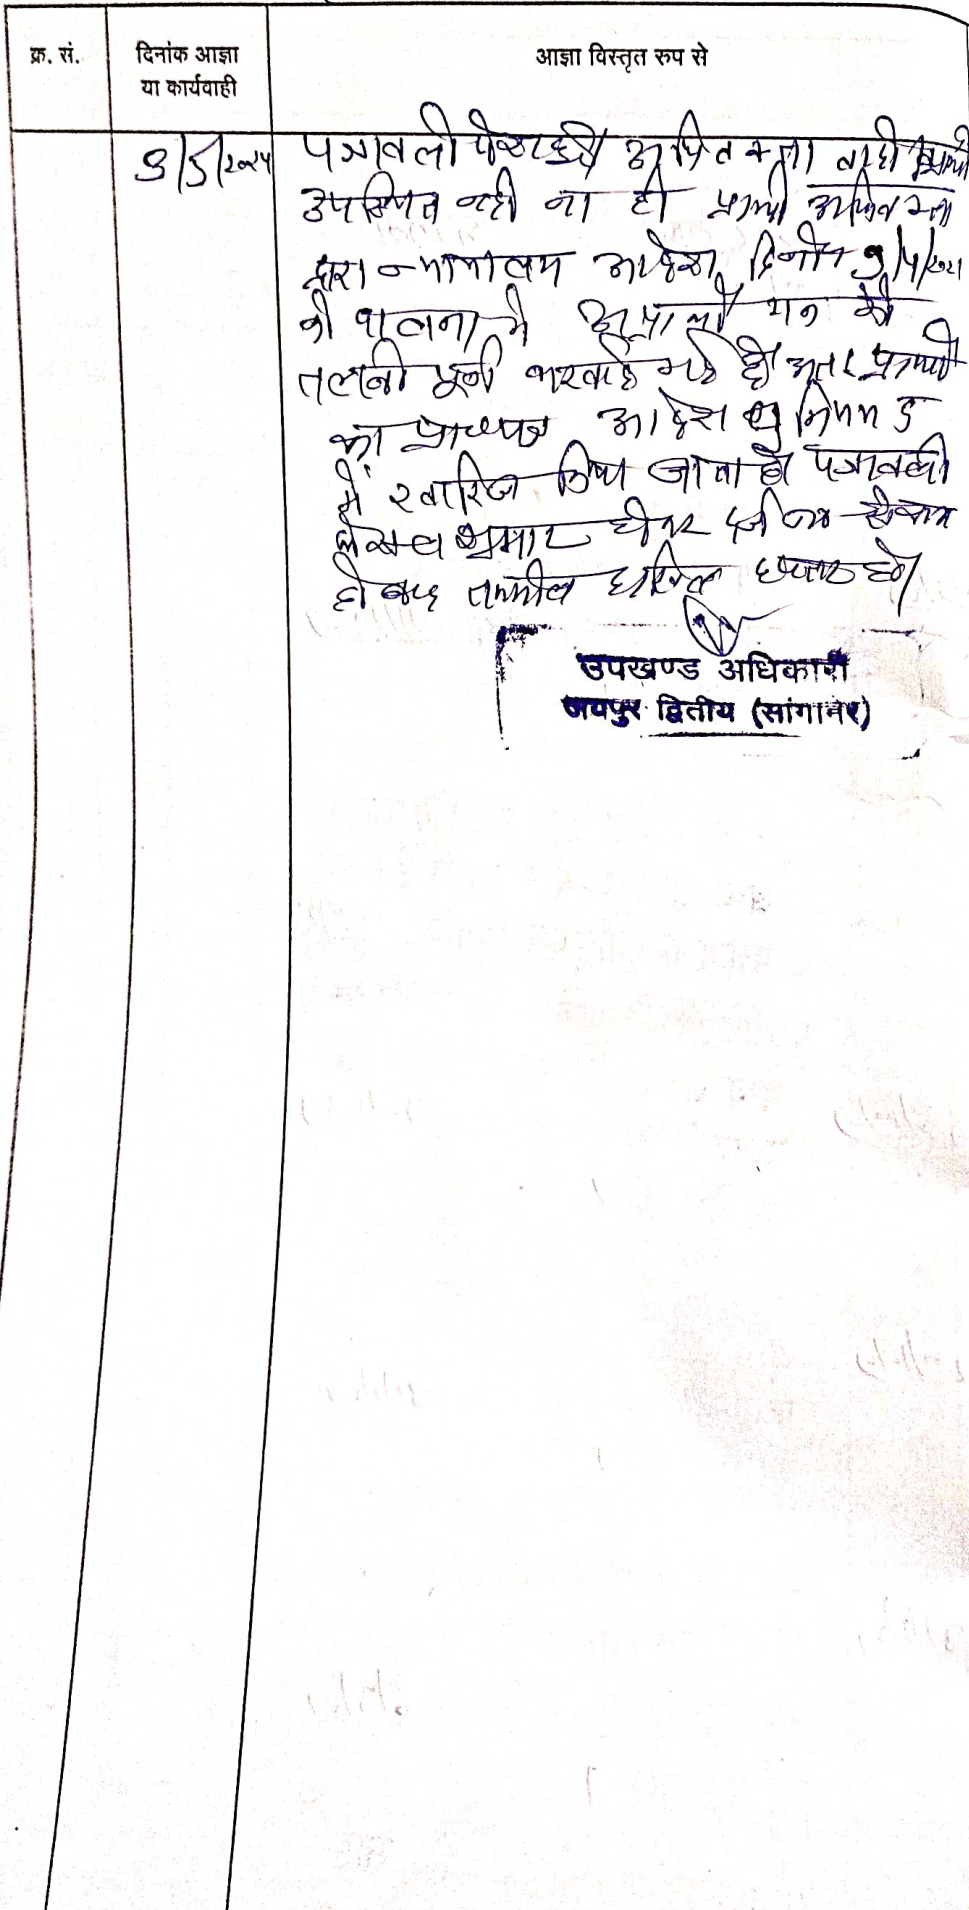 क्र. सं.
दिनांक आज्ञा
या कार्यवाही
आज्ञा विस्तृत रूप से
पत्रावली पेश हुई अधिवक्ता वादी
उपस्थित नही ना ही प्रार्थी अधिवक्ता
द्वारा न्यायालय आदेश दिनांक
की पालना में अप्रार्थी गण की
तलबी पूर्ण करवाई गई है अतः प्रार्थी
का प्रा०पत्र आदेश 9 नियम 5
में खारिज किया जाता है पत्रावली
शुमार होकर दर्ज
हो बाद तकमील दाखिल दफ्तर हो।
उपखण्ड अधिकारी
जयपुर द्वितीय (सांगानेर)